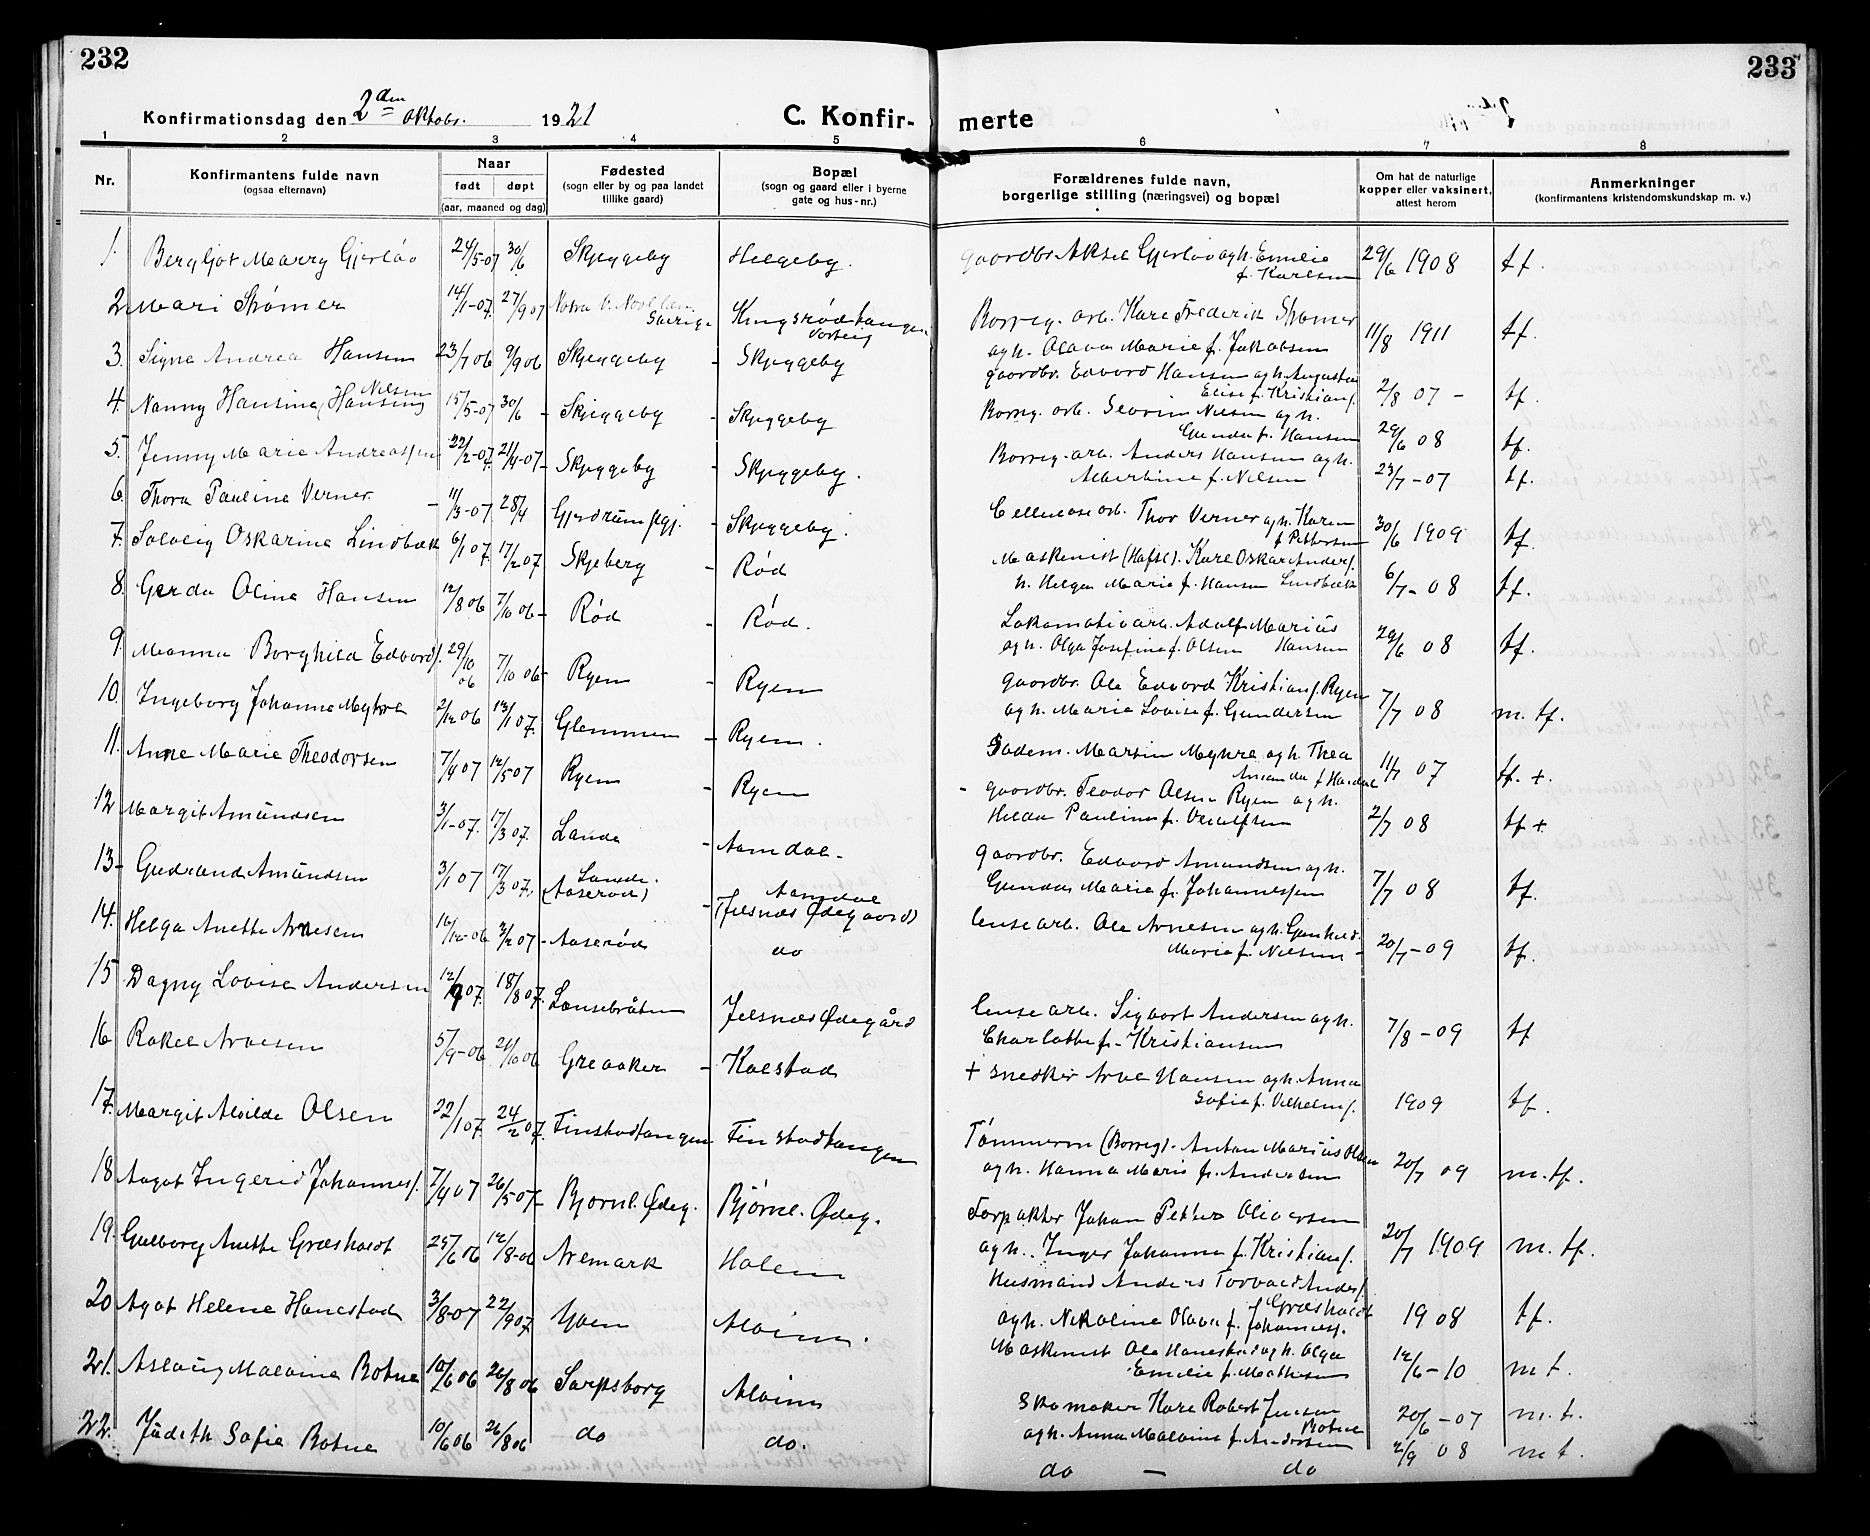 232
233
Konfirmationsdag den 2den oktobr. 1921
C. Konfirmerte
1 2 3 4 5 6 7 8
Nr.
Konfirmantens fulde navn
(ogsaa efternavn)
Naar
født døpt
(aar, maaned og dag)
Fødested
(sogn eller by og paa landet
tillike gaard)
Bopæl
(sogn og gaard eller i byerne
gate og hus-nr.)
Forældrenes fulde navn,
borgerlige stilling (næringsvei) og bopæl
Om hat de naturlige
kopper eller vaksinert,
attest herom
Anmerkninger
(konfirmantens kristendomskundskap m. v.)
1. Bergljot Marry Gjerløv 24/5-07 30/6 Skjeggeby Helgeby. gaardbr. Aksel Gjerløv og h. Emilie f. Karlsen 29/6 1908 tf.
2. Mari Strømer 14/1-07. 27/9 07 Sverige Kingsrødtangen Borreg. arb. Karl Frederik Strømer og h. Olava Marie f. Jakobsen 11/8 1911 tf.
3. Signe Andrea Hansen 23/7 06 9/9 06 Skjeggeby - Skjeggeby gaardbr. Edvard Hansen og h. Augusta Elise f. Kristians. 2/8 07 - tf.
4. Nanny Hansine (Hansine) Nilsen 15/5-07 30/6 - Skjeggeby - Skjeggeby Borreg. arb. Severin Nilsen og h. Gunda f. Hansen 29/6 08 tf.
5. Jenny Marie Andreassen 22/2-07. 21/4-07 - Skjeggeby - Skjeggeby. Borreg. arb. Anders Hansen og h. Albertine f. Nilsen 23/7-07 tf.
6. Thora Pauline Verner - 11/3-07 28/4 Gjerdrum - Skjeggeby. Cellulosearb. Thor Verner og h. Karen f. Pettersen 30/6 1909 tf.
7. Solveig Oskarine Lindbæk 6/1 07. 17/2 07. Skjeberg - Rød Maskinist (Hafsl). Karl Oskar Anders. h. Helga Marie f. Hansen Lindbæk 6/7-08 tf.
8. Gerda Oline Hansen 12/8 06 7/10 06 - Rød - Rød. Lokomotivarb. Adolf Marius Hansen og h. Olga Josefine f. Olsen 29/6 08 tf.
9. Manna Borghild Edvards. 29/10 06 7/10 06 - Ryen - Ryen gaardbr. Ole Edvard Kristians. Ryen og h. Marie Lovise f. Gundersen 7/7 08 m. tf.
10. Ingeborg Johanne Myhre 2/12 06 13/1 07. Glemmen - Ryen. Martin Myhre og h. Thea Amanda f. 11/7 07 tf. +
11. Anne Marie Theodorsen 7/4 07 12/5 07 Ryen - Ryen - gaardbr. Teodor Olsen Ryen og h. Hilda Pauline f. 2/7 08 tf +
12 Margit Amundsen 3/1-07. 17/3 07. Lande - Aamdal - gaardbr. Edvard Amundsen og h. Gunda Marie f. Johannessen 7/7 08 tf.
13 - Gudrund Amundsen 3/1 07 17/3 07. Lande. (Aaserød) - Aamdal (Jelsnæs Ødegaard)
14. Helga Anette Arnesen 16/12-06 3/2 07 - Aaserød do lensearb. Ole Arnesen og h. Gunhild Marie f. Nilsen - 20/7-09 tf.
15 Dagny Lovise Andersen 12/07. 18/8 07. Lensebråten Jelsnæs Ødegård lensearb. Sigvart Andersen og h. Charlotte f. Kristiansen 7/8-09 tf
16 Rakel Arvesen 5/9-06 21/10 06 Greaaker - Kolstad + snedker Arve Hansen og h. Anna Sofie f. Vilhelms. 1909 tf.
17. Margit Alvilde Olsen 22/1 07. 24/2 07. Finstadtangen Finstadtangen Tømmerm (Borreg). Anton Marius Olsen og h. Hanna Marie f. Andersen 20/7 09 m. tf.
18 Aagot Ingerid Johannes. 7/4 07 26/5 07 - Bjørnl. Ødeg. Bjørnl. Ødeg. Forpakter Johan Petter Oliversen og h. Inger Johanne f. Kristians. 20/7 1909 m. tf.
19. Gulborg Anette Græsholdt 25/6 06 12/8-06 Aremark Holein Husmand Anders Torvald Anders. Græsholdt og h. Nikoline Olava f. Johannes. 1908 tf.
20 Agot Helene Hanestad 3/8-07 22/9 07 Yven Alvim. Maskinist Ole Hanestad og h. Olga Emilie f. Mathisen 12/6-10 m t.
21. Aslaug Malvine Botne 10/6 06 26/8 06 Sarpsborg Alvim Skomaker Karl Robert Jensen Botne og h. Anna Malvine f. Andersen 20/6-07 m. t.
22. Judith Sofie Botne 10/6 06 26/8 06 do do. do - do 2/9 08 m t.